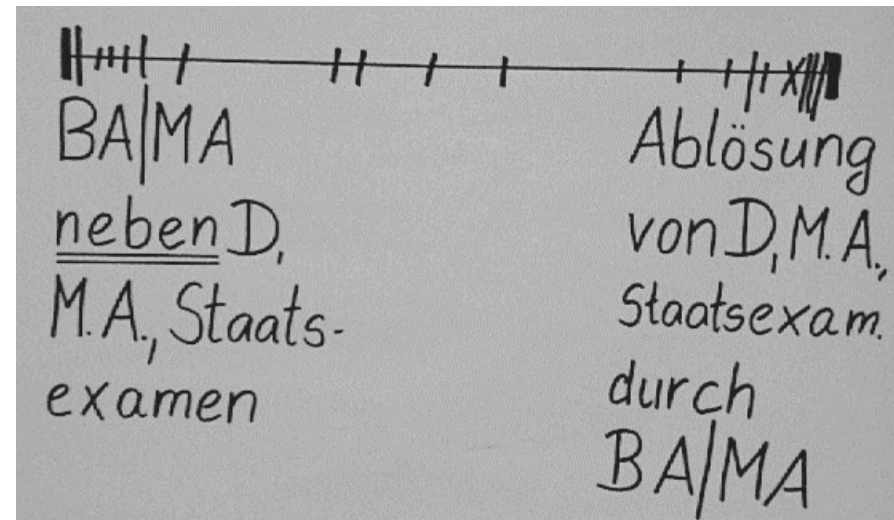 BA/MA
neben D,
M.A., Staats-
examen
Ablösung
von D, M.A.,
Staatsexam.
durch
BA/MA